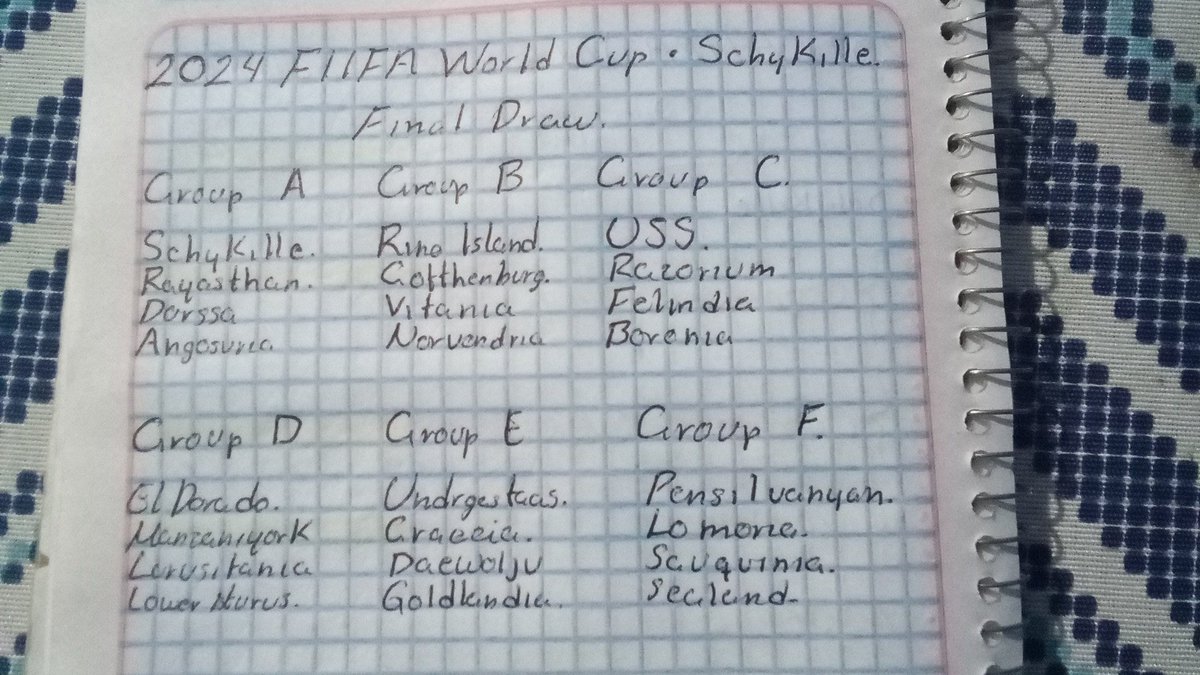 2024 FIIFA World Cup • Schykille.
Final Draw.
Group A Group B Group C.
Schykille. Rino Island. USS.
Rayasthan. Gotthenburg. Razorium
Dorssa Vitania Felindia
Angosuria Norvendria Borenia
Group D Group E Group F.
El Dorado. Undrgestaas. Pensilvanyan.
Manzaniyork Graecia. Lomoria.
Lorusitania Daewolju Sauquinia.
Lower Nurus. Goldlandia. Sealand.